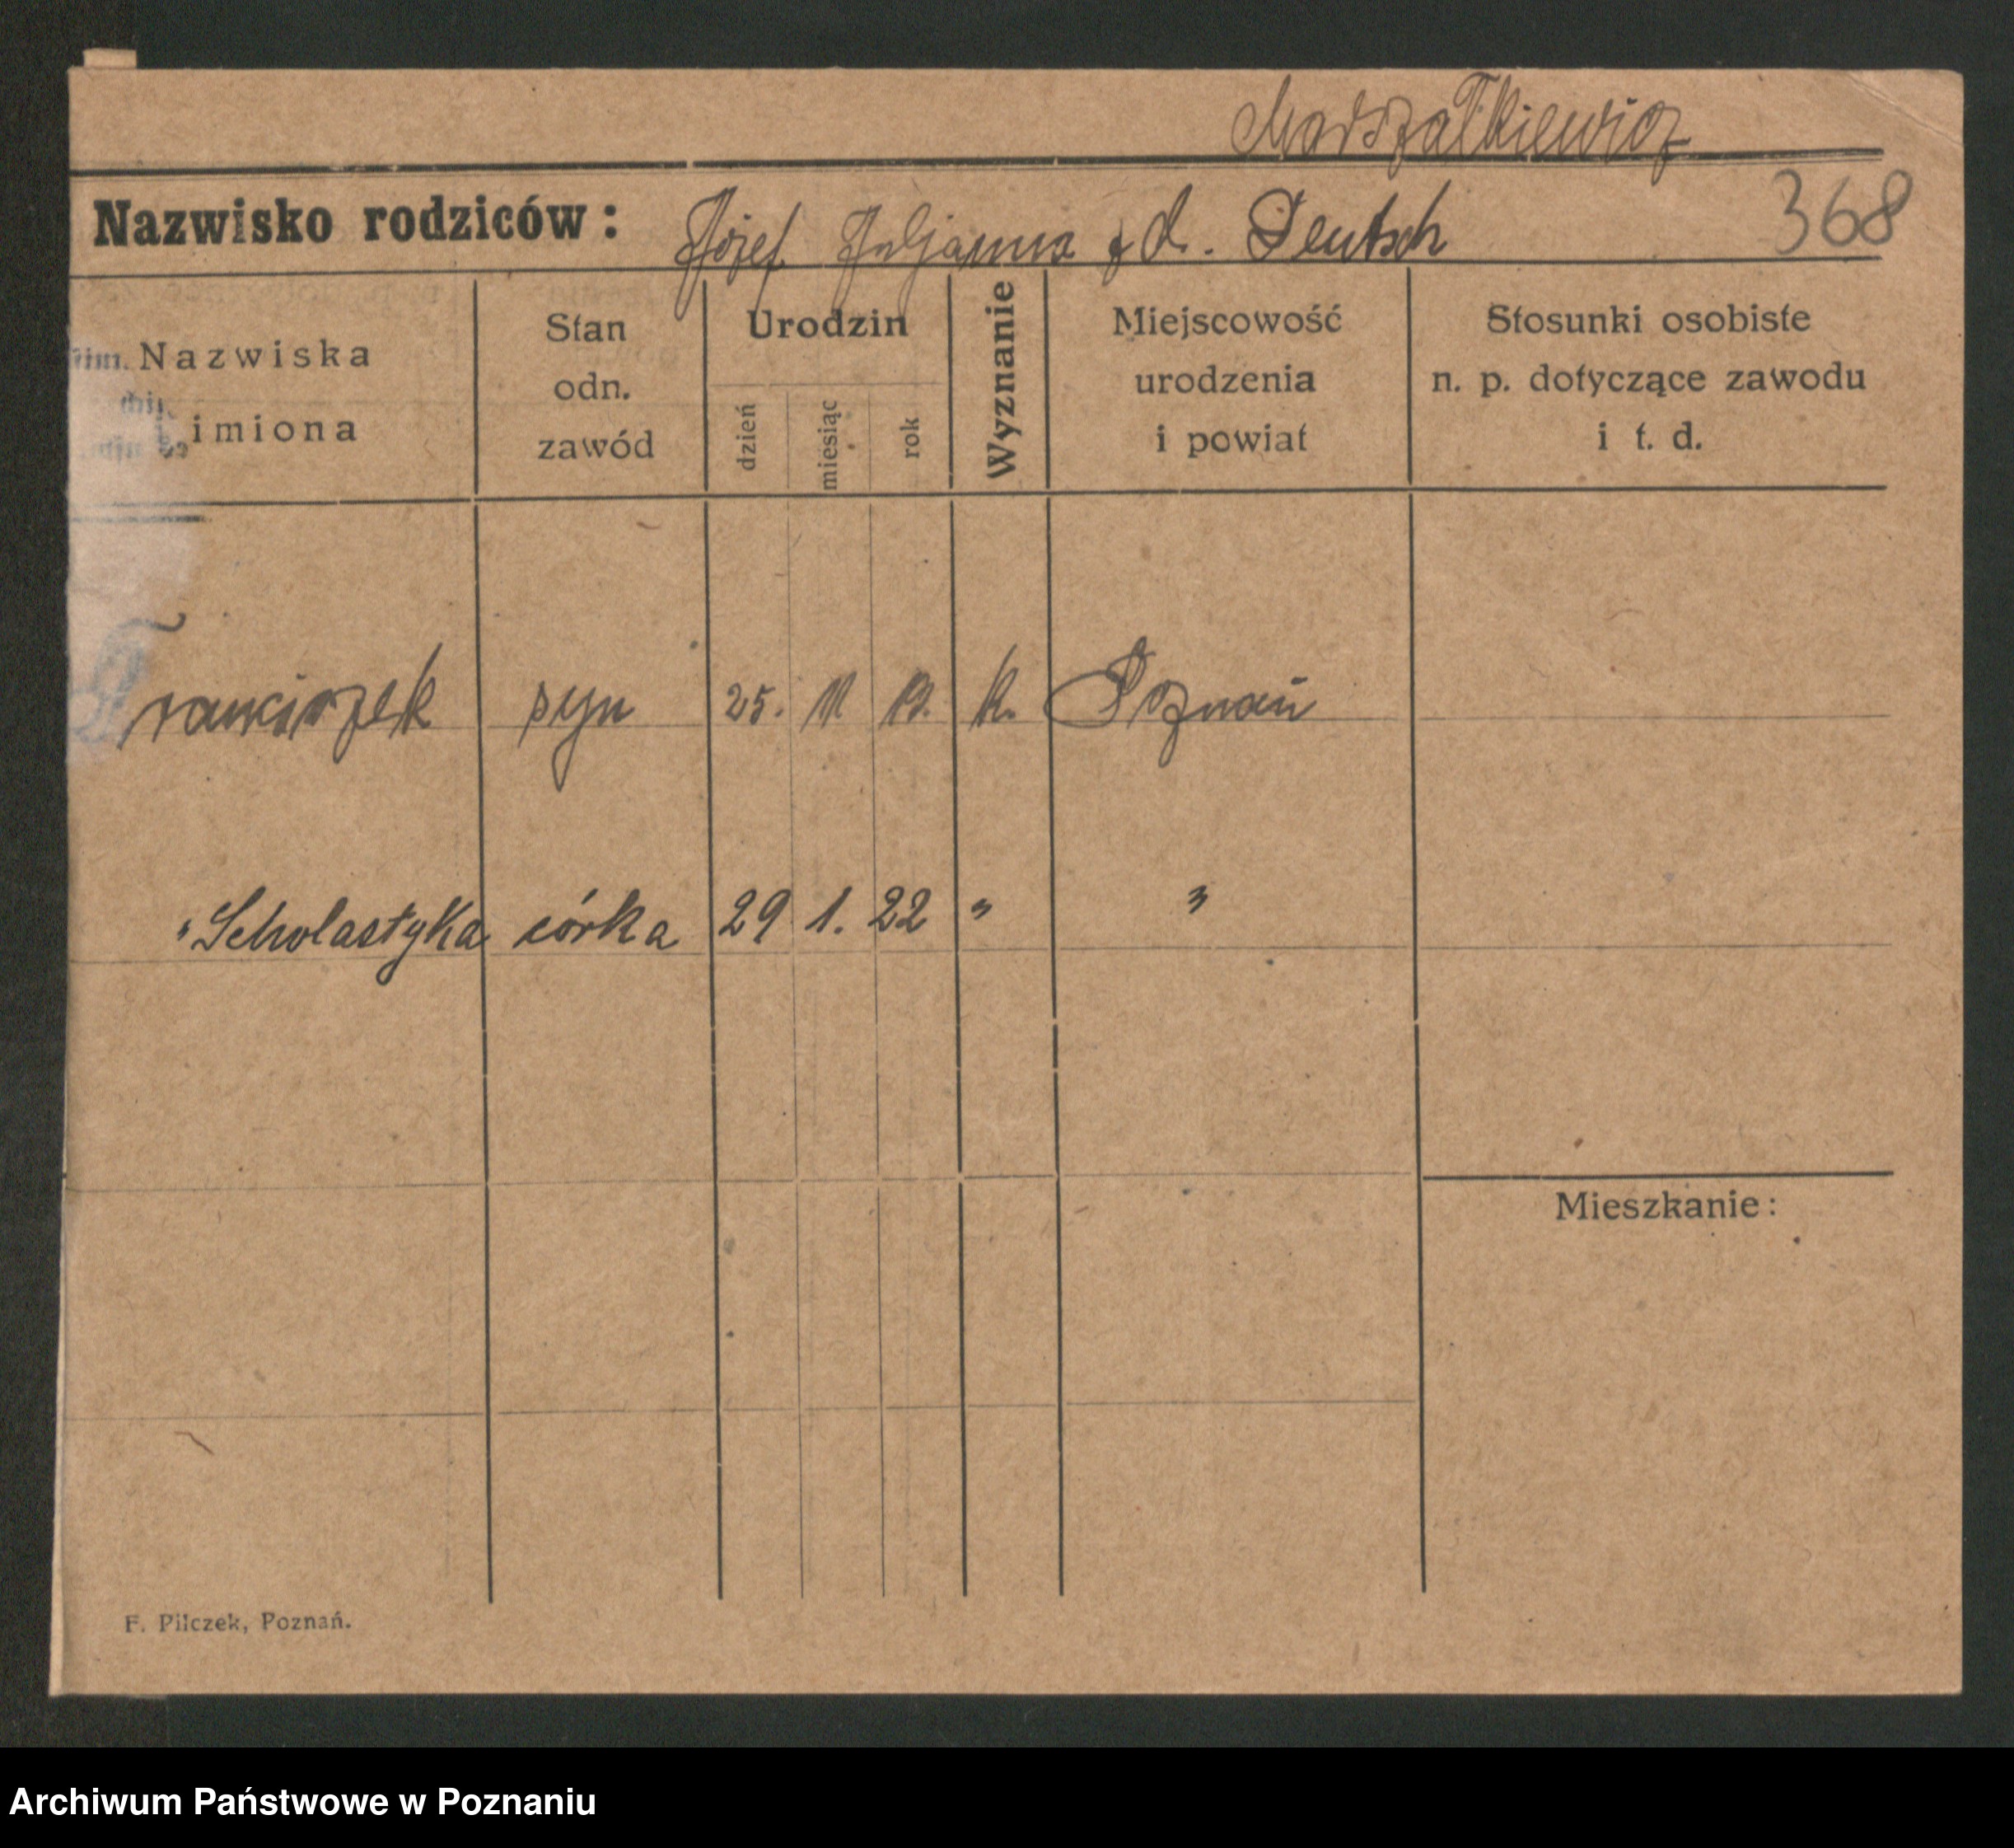 Marszałkiewicz
Nazwisko rodziców: Józef Juljanna z d. Deutsch 368
Nazwiska
imiona
Stan
odn.
zawód
Urodzin
dzień
miesiąc
rok
Wyznanie
Miejscowość
urodzenia
i powiat
Stosunki osobiste
n. p. dotyczące zawodu
i t. d.
Franciszek syn 25. 11 k. Poznań
" Scholastyka córka 29 1. 22 " "
Mieszkanie:
F. Pilczek, Poznań.
Archiwum Państwowe w Poznaniu